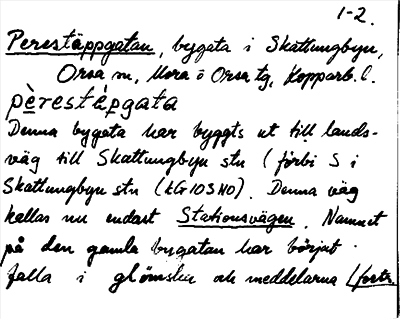 1-2.
Perestäppgatan, bygata i Skattungbyn,
Orsa sn, Mora o Orsa tg, Kopparb. l.
pèrestȧ́pgata
Denna bygata har byggts ut till lands-
väg till Skattungbyn stn (förbi S i
Skattungbyn stn (kG 103 NO). Denna väg
kallas nu endast Stationsvägen. Namnet
på den gamla bygatan har börjat
falla i glömska och meddelarna (forts.